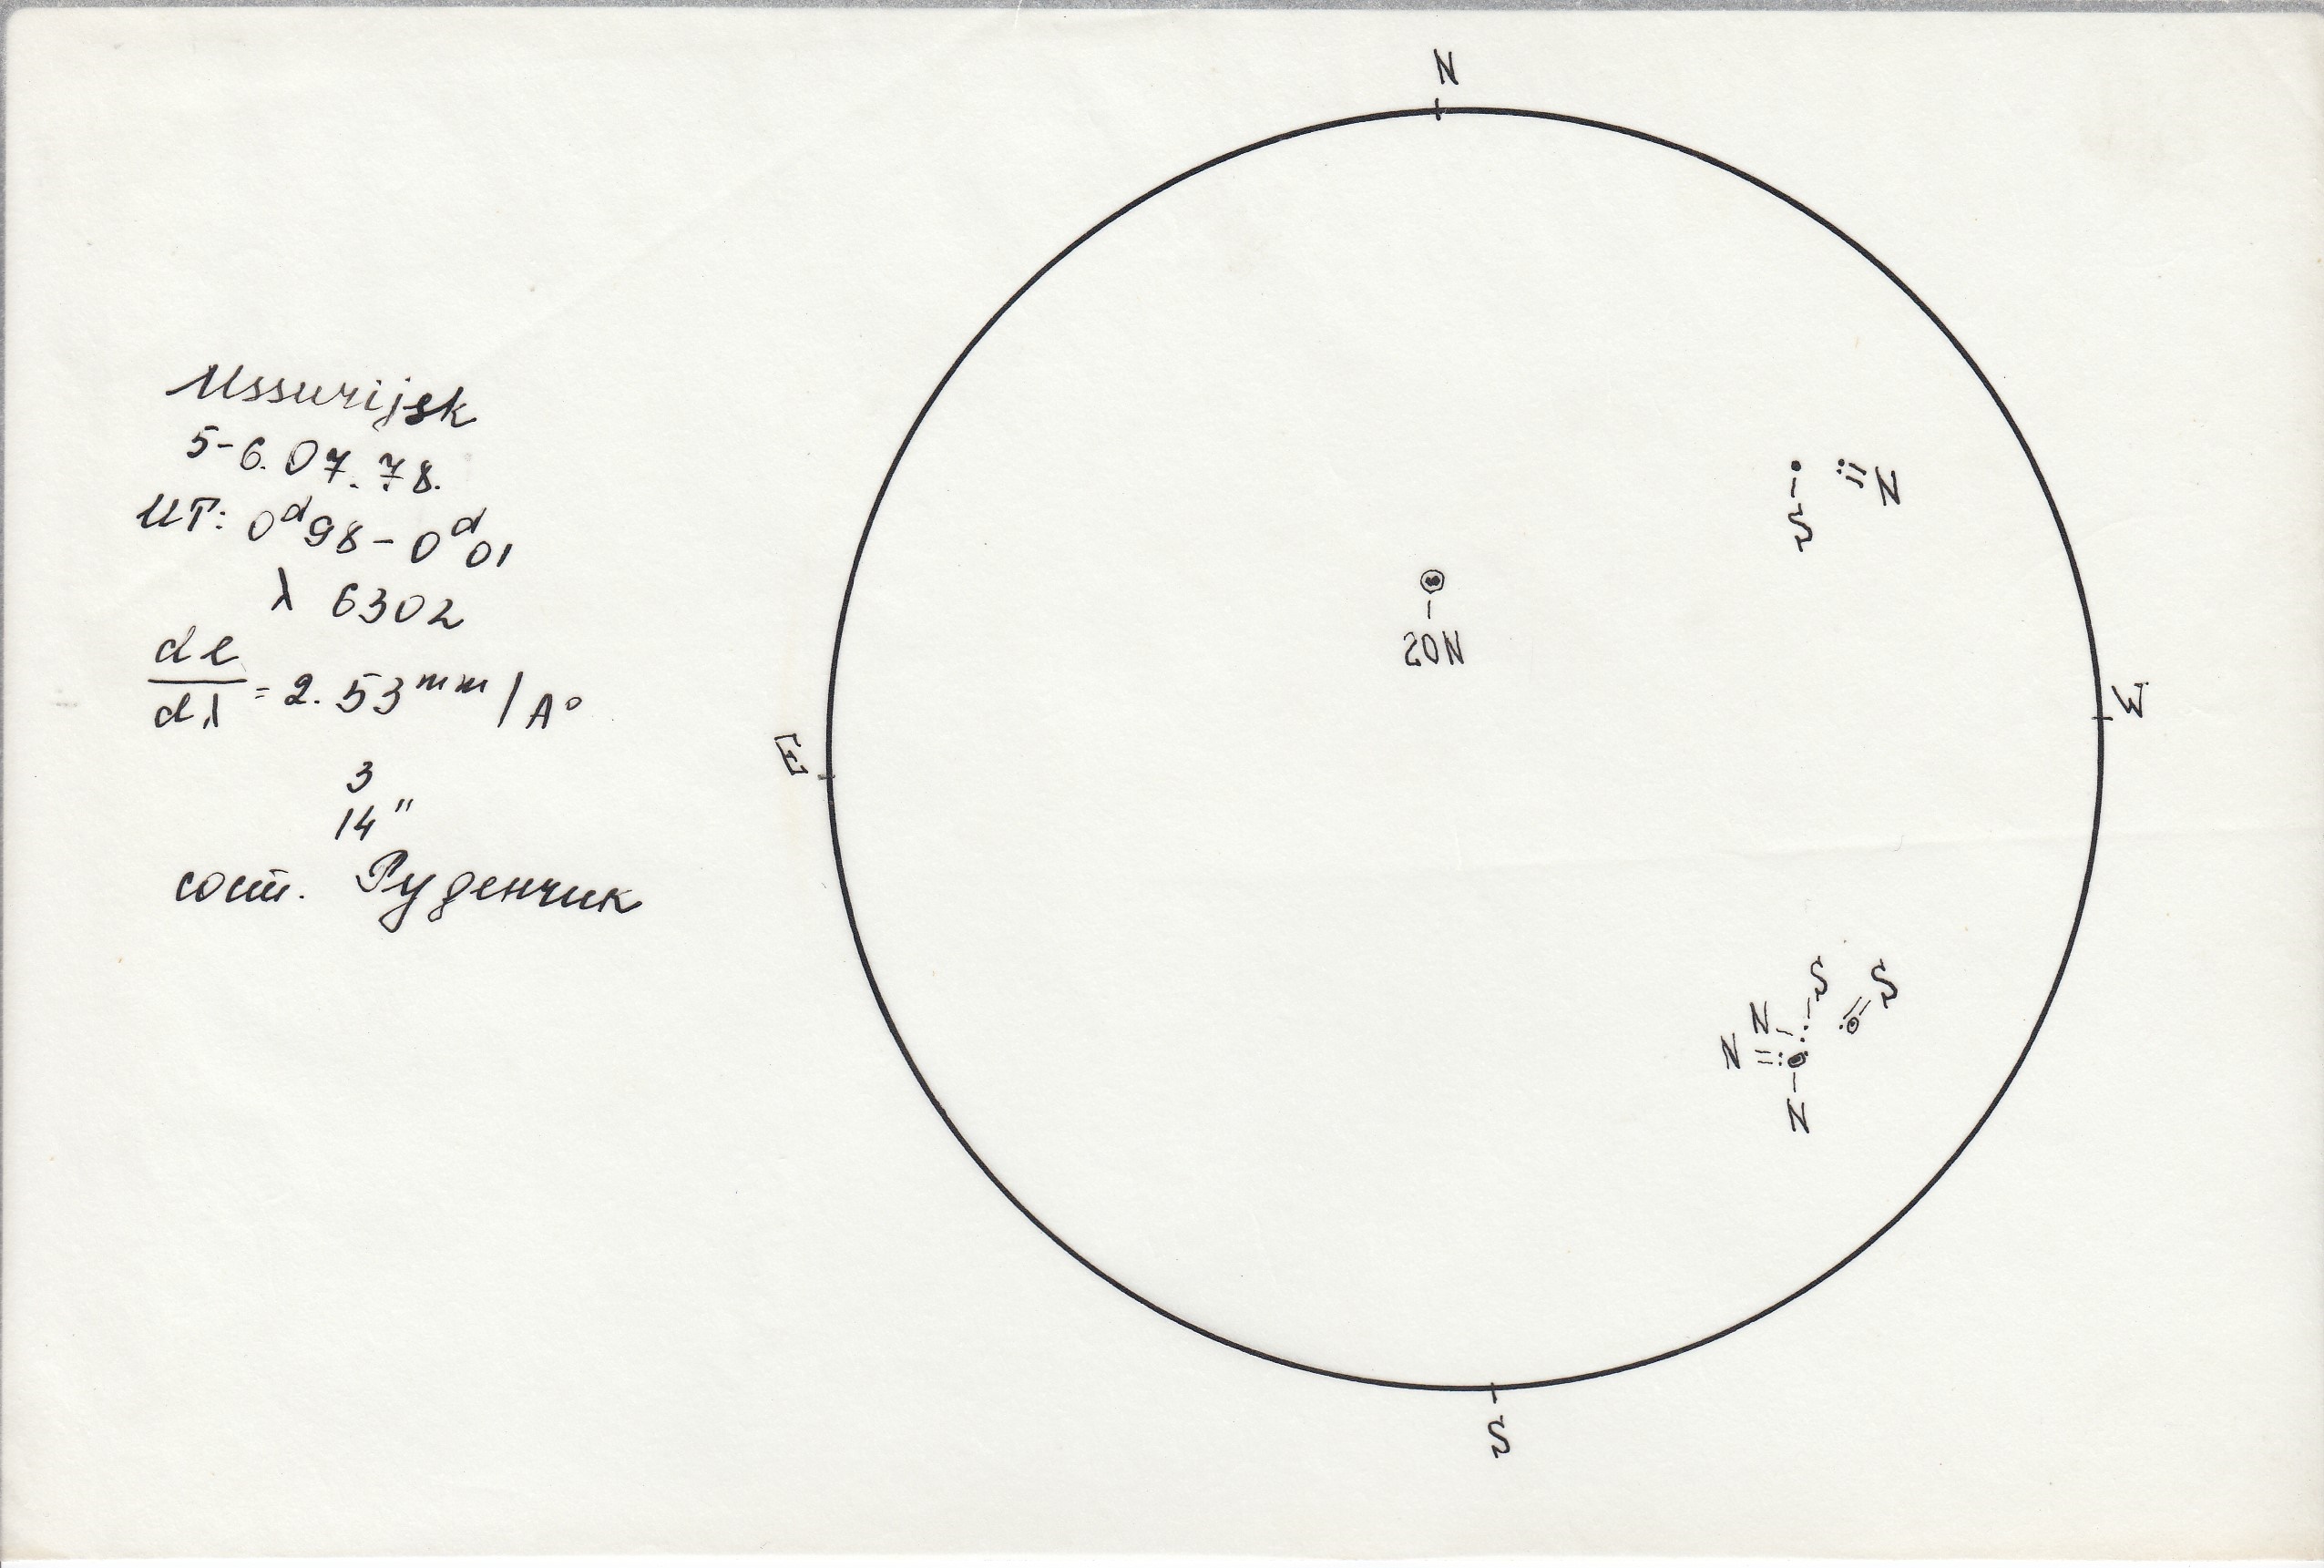 Ussurijsk
5-6.07.78.
UT: 0ᵈ98 - 0ᵈ01
λ 6302
dl
dλ = 2.53 mm / A°
3
14"
сост. Руденчик
N
E
W
S
S
N
20N
S
S
N
N
N